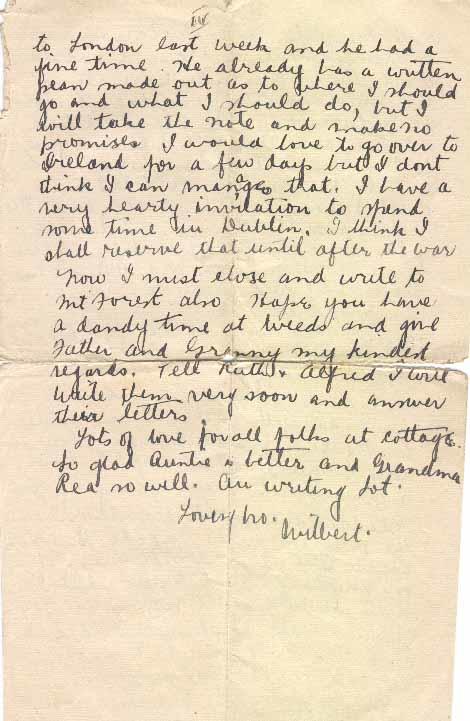 IV
to London last week and he had a
fine time. He already has a written
pean made out as to where I should
go and what I should do, but I
will take the note and make no
promises I would love to go over to
Ireland for a few days but I dont
think I can manage that. I have a
very hearty invitation to spend
some time in Dublin. I think I
shall reserve that until after the war
Now I must close and write to
Mt Forest also Hope you have
a dandy time at Weeds and give
Father and Granny my kindest
regards. Tell Ruth & Alfred I will
write them very soon and answer
their letters.
Lots of love for all folks at cottage.
So glad Auntie is better and Grandma
Rea so well. Au writing Lot.
Loving bro.
Wilbert.